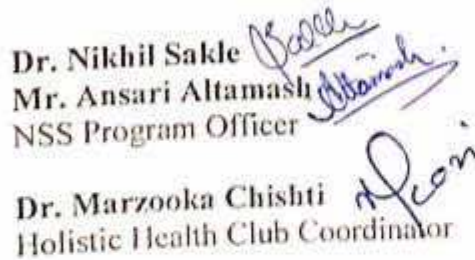 Dr. Nikhil Sakle
Mr. Ansari Altamash Altamash.
NSS Program Officer
Dr. Marzooka Chishti
Holistic Health Club Coordinator